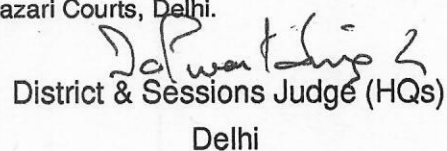 azari Courts, Delhi.
District & Sessions Judge (HQs)
Delhi